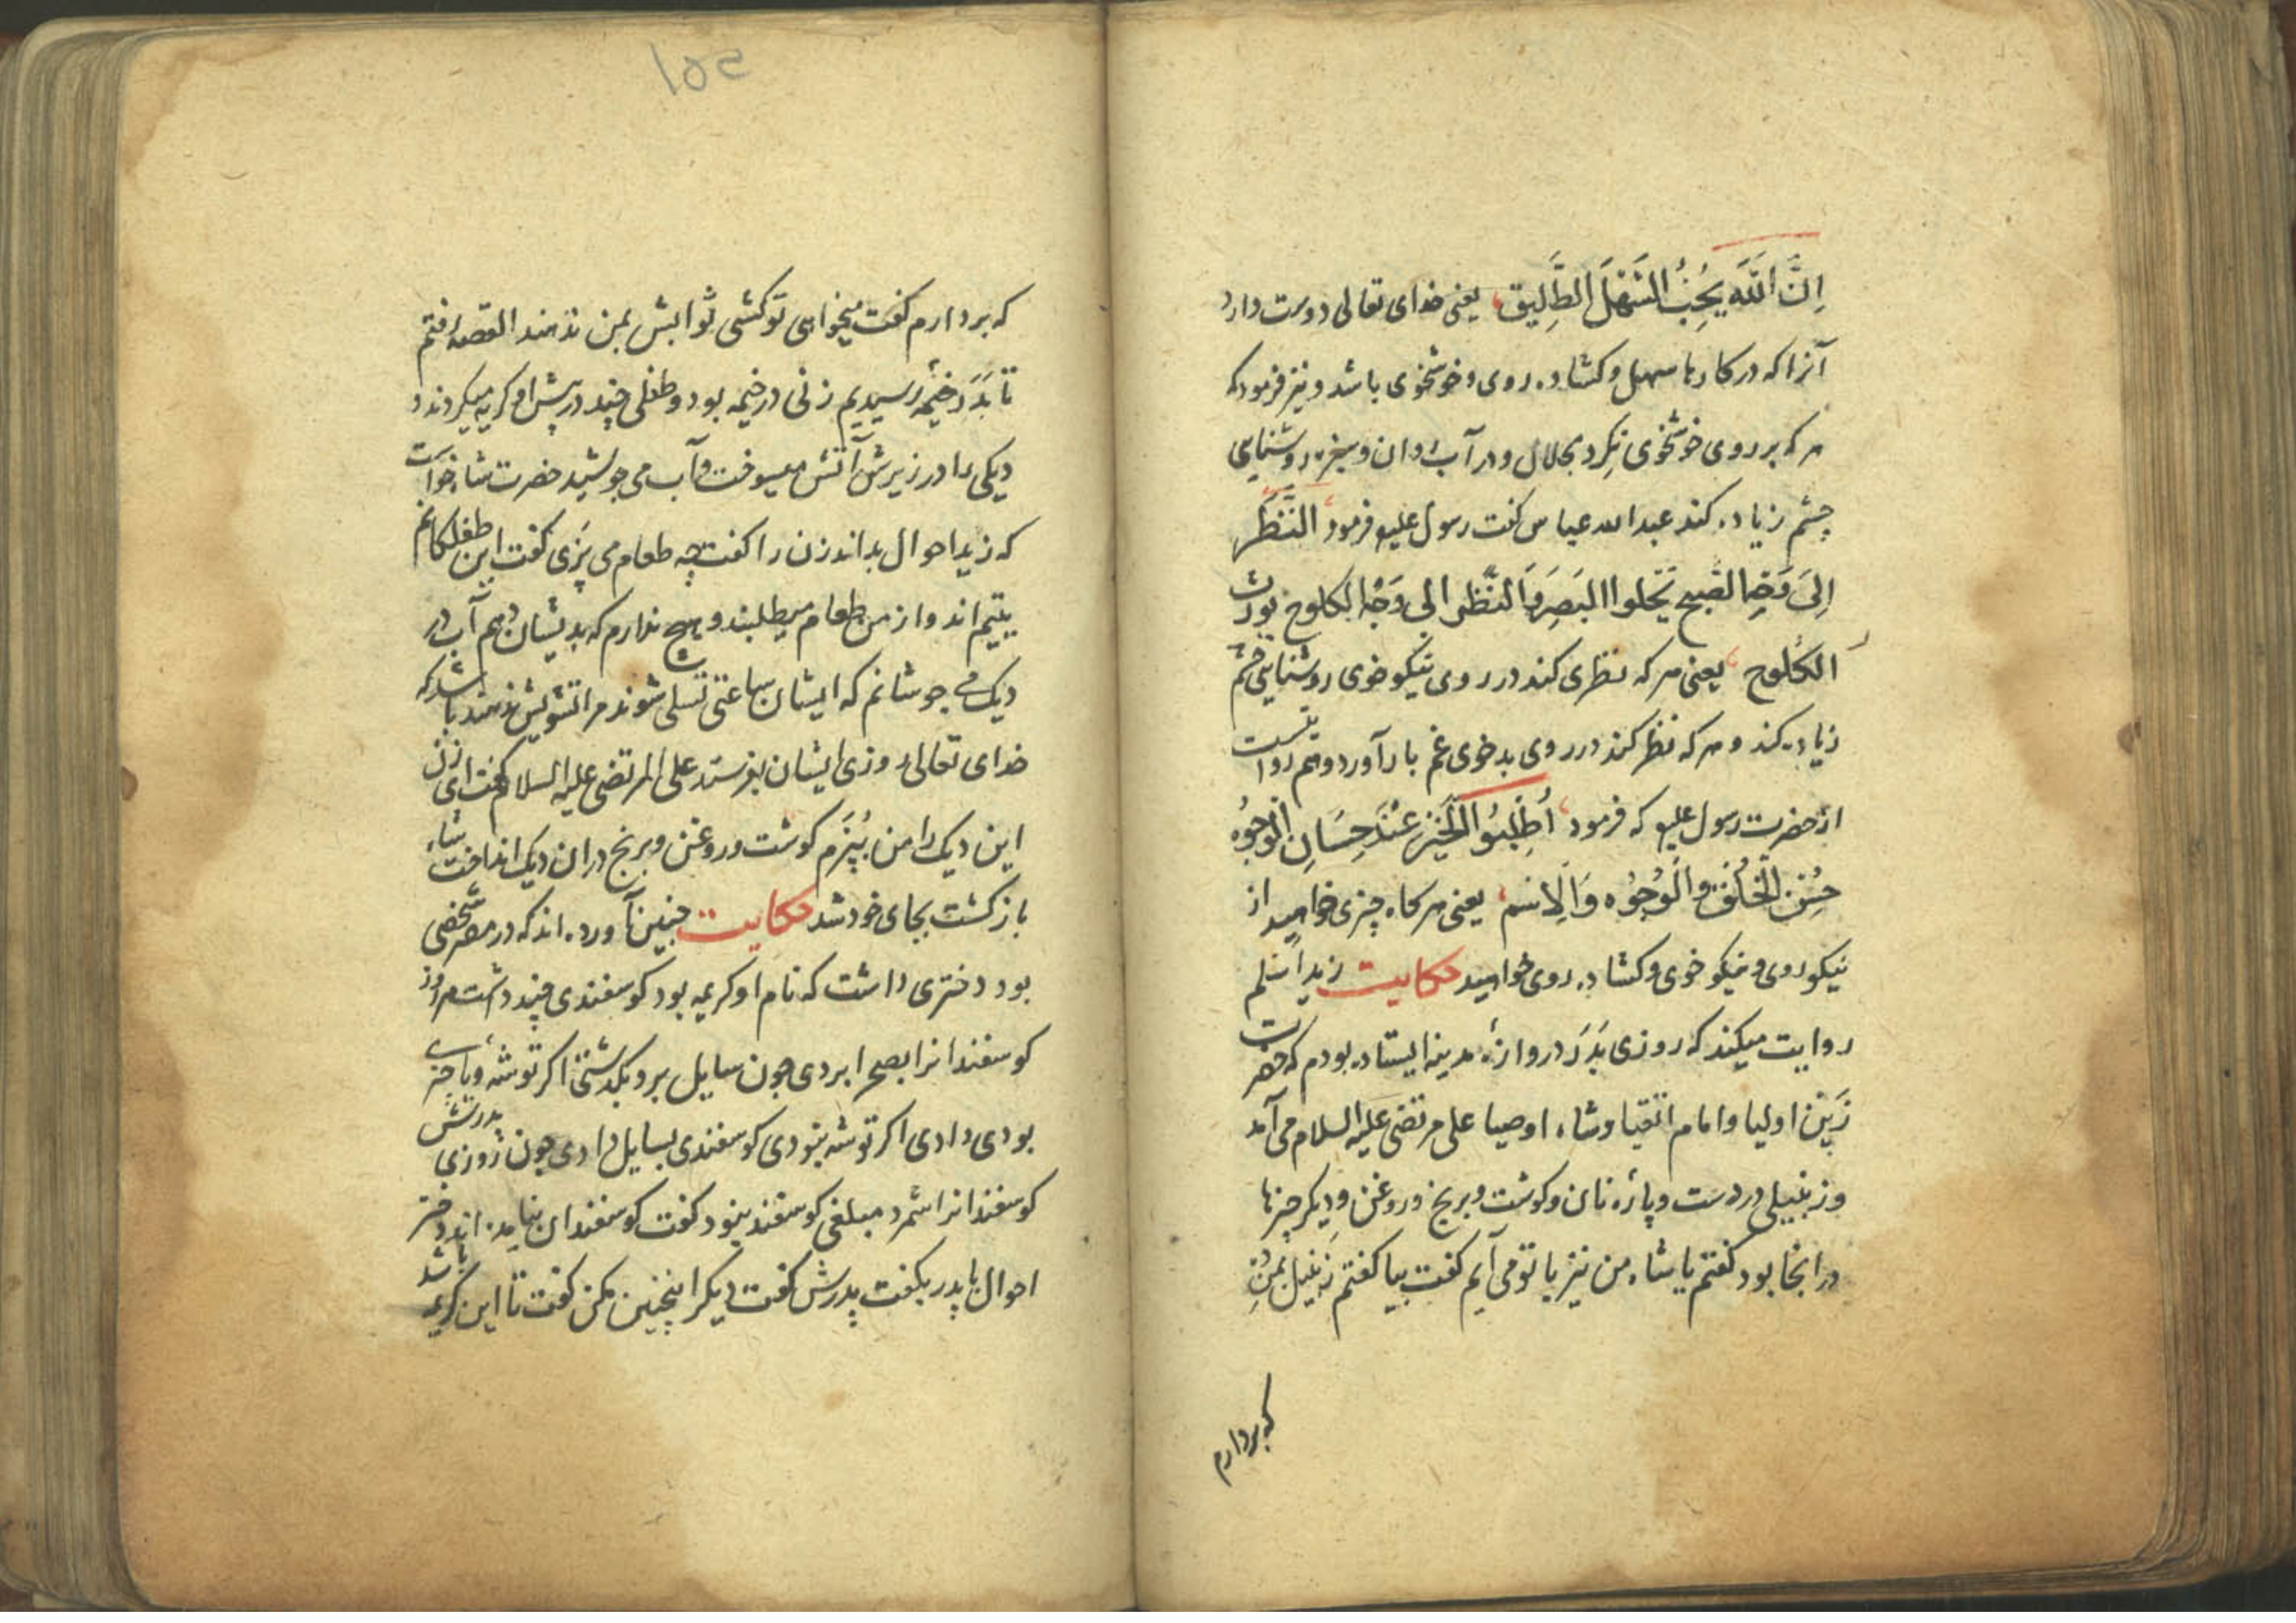 اِنَّ اللّٰهَ يُحِبُّ السَّهْلَ الطَّلِيق یعنی خدای تعالی دوست دارد
آنرا که در کارها سهل و کشاده روی و خوشخوی باشد و نیز فرمود که
هر که بر روی خوشخوی نکرد بحلال و در آب روان و سبزه روشنایی
چشم زیاده کند عبد الله عباس کفت رسول علیه فرمود النَّظَر
اِلیَ وَجْهِ الصَّبیح یَجْلوا البَصَرَ وَالنَّظَر الی وَجْهِ الکلوح یورث
الکُلوح یعنی هر که نظری کند در روی نیکو خوی روشنایی چشم
زیاده کند و هر که نظر کند در روی بد خوی غم بار آورد و هم روایتست
از حضرت رسول علیه که فرمود اُطْلُبُوا الْخَیْرَ عِنْدَ حِسَانِ الْوُجُوْه
حُسْنَ الْخُلْقِ وَالْوُجُوْه وَالْاِسْم یعنی هر کاه چیزی خواهید از
نیکو روی و نیکو خوی و کشاده روی خواهید حکایت زید اَسْلم
روایت میکند که روزی بَدَرَ دروازهٔ مدینه ایستاده بودم که حضرت
زَیْنِ اولیا و امام اتقیا و شاه اوصیا علی مرتضی علیه السلام می آمد
و زنبیلی در دست و پاره نان و کوشت و برنج و روغن و دیکر چیزها
در انجا بود کفتم یا شاه من نیز با تو می آیم کفت بیا کفتم زنبیل بمن ده
که بردارم
۱۵۲
که بردارم کفت میخواهی تو کشی ثوابش بمن ندهند القصه رفتم
تا بَدَرَ خیمهٔ رسیدیم زنی در خیمه بود و طفلی چند در پیش او کریه میکردند و
دیکی را در زیرش آتش میسوخت و آب می جوشید حضرت شاه خواست
که زید احوال بداند زن را کفت چه طعام می پزی کفت این طفلکانم
یتیم اند و از من طعام میطلبند و هیچ ندارم که بدیشان دهم آب در
دیک می جوشانم که ایشان ساعتی تسلی شوند مرا تشویش ندهند باشد که
خدای تعالی روزی ایشان بفرستد علی المرتضی علیه السلام کفت ای زن
این دیک را من بُپَزَم کوشت و روغن و برنج دران دیک انداخت شاه
باز کشت بجای خود شد حکایت چنین آورده اند که در مصر شخصی
بود دختری داشت که نام او کریمه بود کوسفندی چند داشت هر روز
کوسفندانرا بصحرا بردی چون سایل برو بکذشتی اکر توشهٔ و یا چیزی
بودی دادی اکر توشه نبودی کوسفندی بسایل دادی چون روزی پدرش
کوسفندانرا شمرد مبلغی کوسفند نبود کفت کوسفندان نیامده اند دختر
احوال با پدر بکفت پدرش کفت دیکر اینچنین مکن کفت تا این کریمه باشد